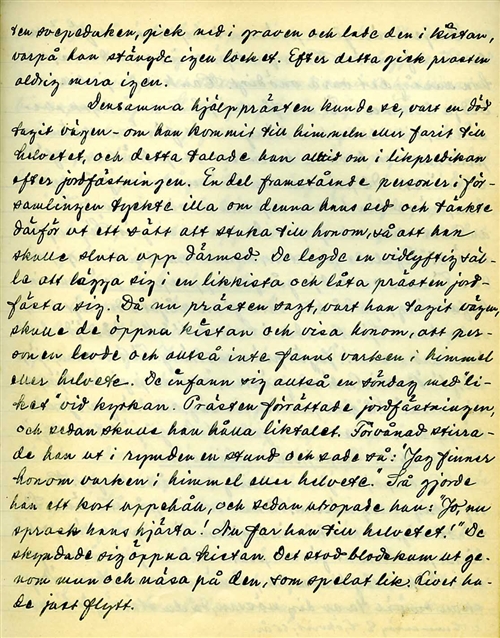 ten svepeduken, gick ned i graven och lade den i kistan,
varpå han stängde igen locket. Efter detta gick prosten
aldrig mera igen.
Densamma hjälpprästen kunde se, vart en död
tagit vägen - om han kommit till himmeln eller farit till
helvetet, och detta talade han alltid om i likpredikan
efter jordfästningen. En del framstående personer i för-
samlingen tyckte illa om denna hans sed och tänkte
därför ut ett sätt att stuka till honom, så att han
skulle sluta upp därmed. De legde en vidlyftig säl-
le att lägga sig i en likkista och låta prästen jord-
fästa sig. Då nu prästen sagt, vart han tagit vägen,
skulle de öppna kistan och visa honom, att per-
sonen levde och alltså inte fanns varken i himmel
eller helvete. De infann sig alltså en söndag med "li-
ket" vid kyrkan. Prästen förrättade jordfästningen,
och sedan skulle han hålla liktalet. Förvånad stirra-
de han ut i rymden en stund och sade så: "Jag finner
honom varken i himmel eller helvete." Så gjorde
han ett kort uppehåll, och sedan utropade han: "Jo, nu
sprack hans hjärta! Nu far han till helvetet!" De
skyndade sig öppna kistan. Det stod blodskum ut ge-
nom mun och näsa på den, som spelat lik. Livet ha-
de just flytt.